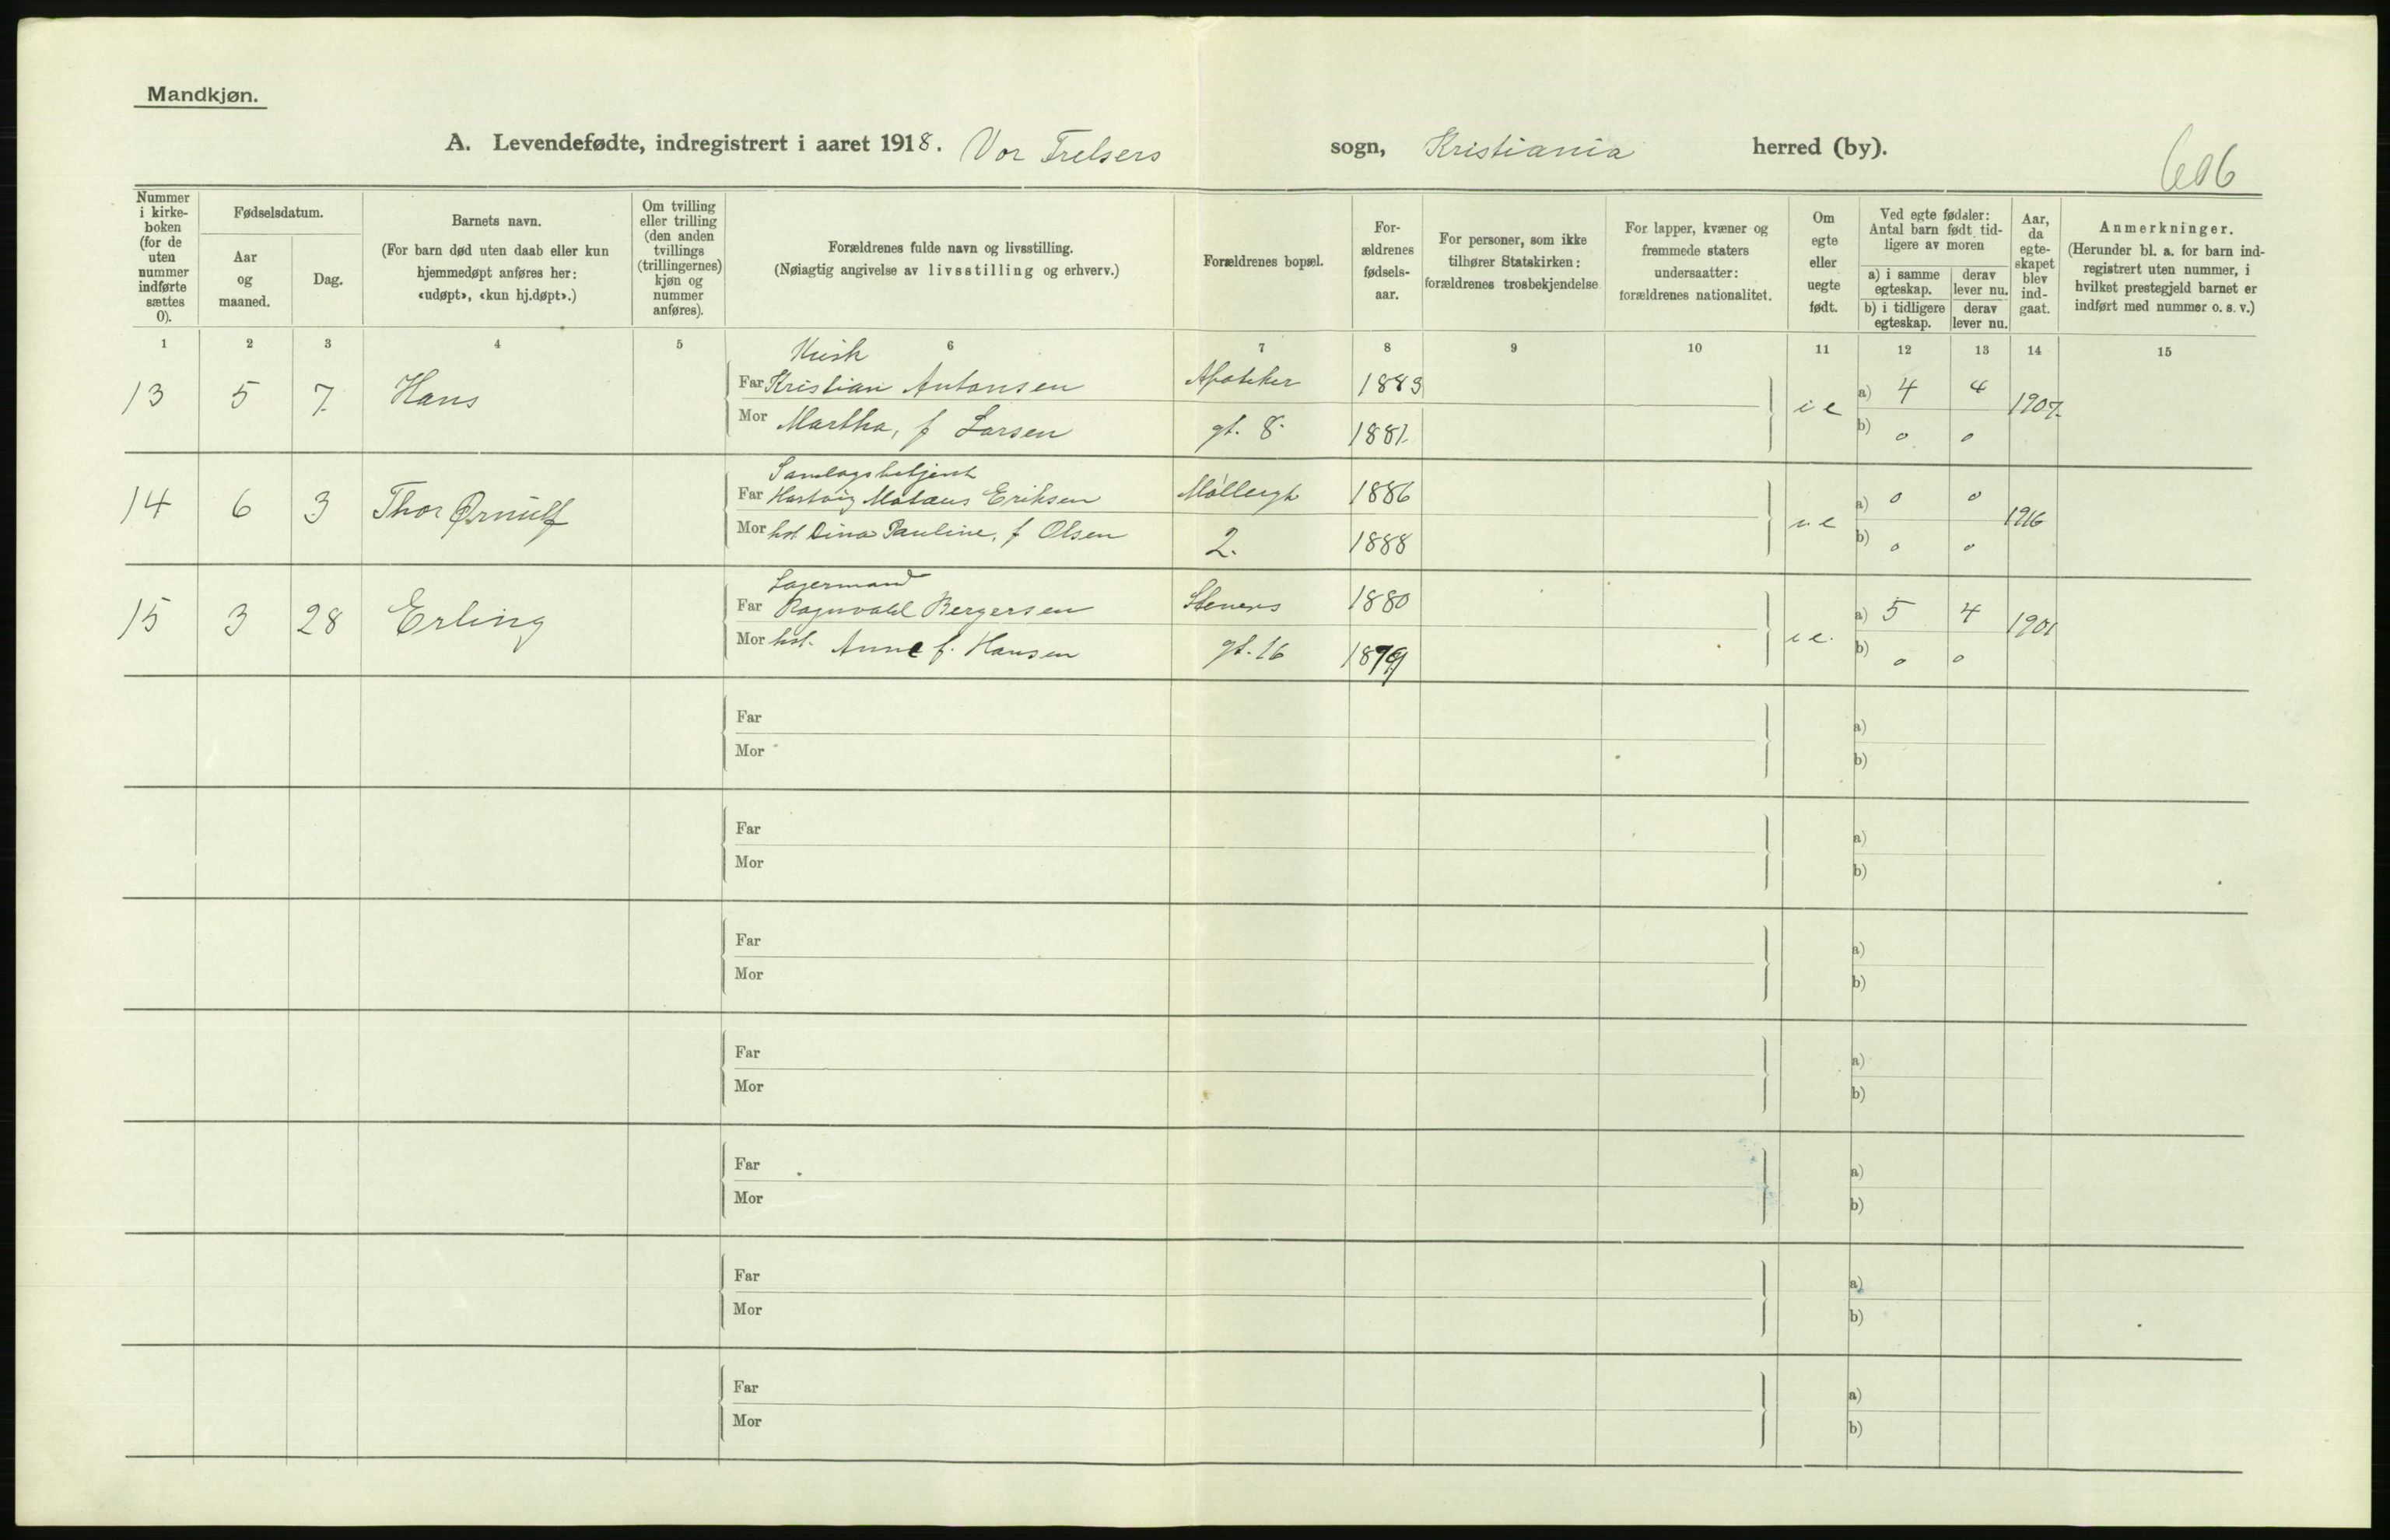 Mandkjøn.
A. Levendefødte, indregistrert i aaret 1918. Vor Frelsers sogn, Kristiania herred (by).
606
Nummer i kirkeboken (for de uten nummer indførte sættes 0).
Fødselsdatum.
Aar og maaned.
Dag.
Barnets navn.
(For barn død uten daab eller kun hjemmedøpt anføres her: «udøpt», «kun hj.døpt».)
Om tvilling eller trilling (den anden tvillings (trillingernes) kjøn og nummer anføres).
Forældrenes fulde navn og livsstilling.
(Nøiagtig angivelse av livsstilling og erhverv.)
Forældrenes bopæl.
Forældrenes fødselsaar.
For personer, som ikke tilhører Statskirken: forældrenes trosbekjendelse
For lapper, kvæner og fremmede staters undersaatter: forældrenes nationalitet.
Om egte eller uegte født.
Ved egte fødsler: Antal barn født tidligere av moren
a) i samme egteskap. derav lever nu.
b) i tidligere egteskap. derav lever nu.
Aar, da egteskapet blev indgaat.
Anmerkninger.
(Herunder bl. a. for barn indregistrert uten nummer, i hvilket prestegjeld barnet er indført med nummer o. s. v.)
1 2 3 4 5 6 7 8 9 10 11 12 13 14 15
Kusk
13 5 7. Hans Far Kristian Antonsen Apoteker 1883 i e a) 4 4 1907.
Mor Martha, f Larsen gt. 8. 1881. b) 0 0
Samlagsbetjent
14 6 3 Thor Ørnulf Far Hartvig Mataus Eriksen Møllergt 1886 i e a) 0 0 1916
Mor hst Dina Pauline, f Olsen 2. 1888 b) 0 0
Lagermand
15 3 28 Erling Far Ragnvald Bergersen Steners 1880 i e. a) 5 4 1901
Mor hst. Anne f. Hansen gt. 16 1879 b) 0 0
Far a)
Mor b)
Far a)
Mor b)
Far a)
Mor b)
Far a)
Mor b)
Far a)
Mor b)
Far a)
Mor b)
Far a)
Mor b)